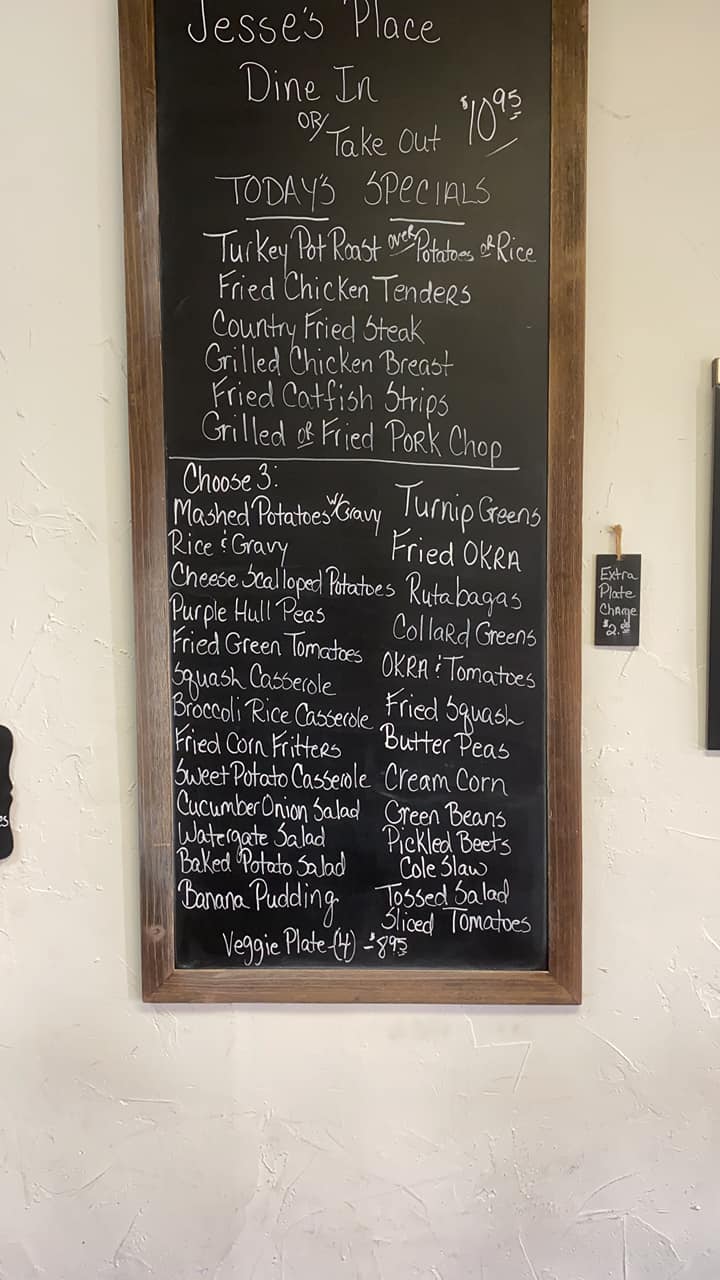 Jesse's Place
Dine In
OR/
Take Out $10.95
TODAY'S SPECIALS
Turkey Pot Roast over Potatoes or Rice
Fried Chicken Tenders
Country Fried Steak
Grilled Chicken Breast
Fried Catfish Strips
Grilled or Fried Pork Chop
Choose 3:
Mashed Potatoes w/Gravy
Rice & Gravy
Cheese Scalloped Potatoes
Purple Hull Peas
Fried Green Tomatoes
Squash Casserole
Broccoli Rice Casserole
Fried Corn Fritters
Sweet Potato Casserole
Cucumber Onion Salad
Watergate Salad
Baked Potato Salad
Banana Pudding
Turnip Greens
Fried OKRA
Rutabagas
Collard Greens
OKRA & Tomatoes
Fried Squash
Butter Peas
Cream Corn
Green Beans
Pickled Beets
Cole Slaw
Tossed Salad
Sliced Tomatoes
Veggie Plate (4) - $8.95
Extra
Plate
Charge